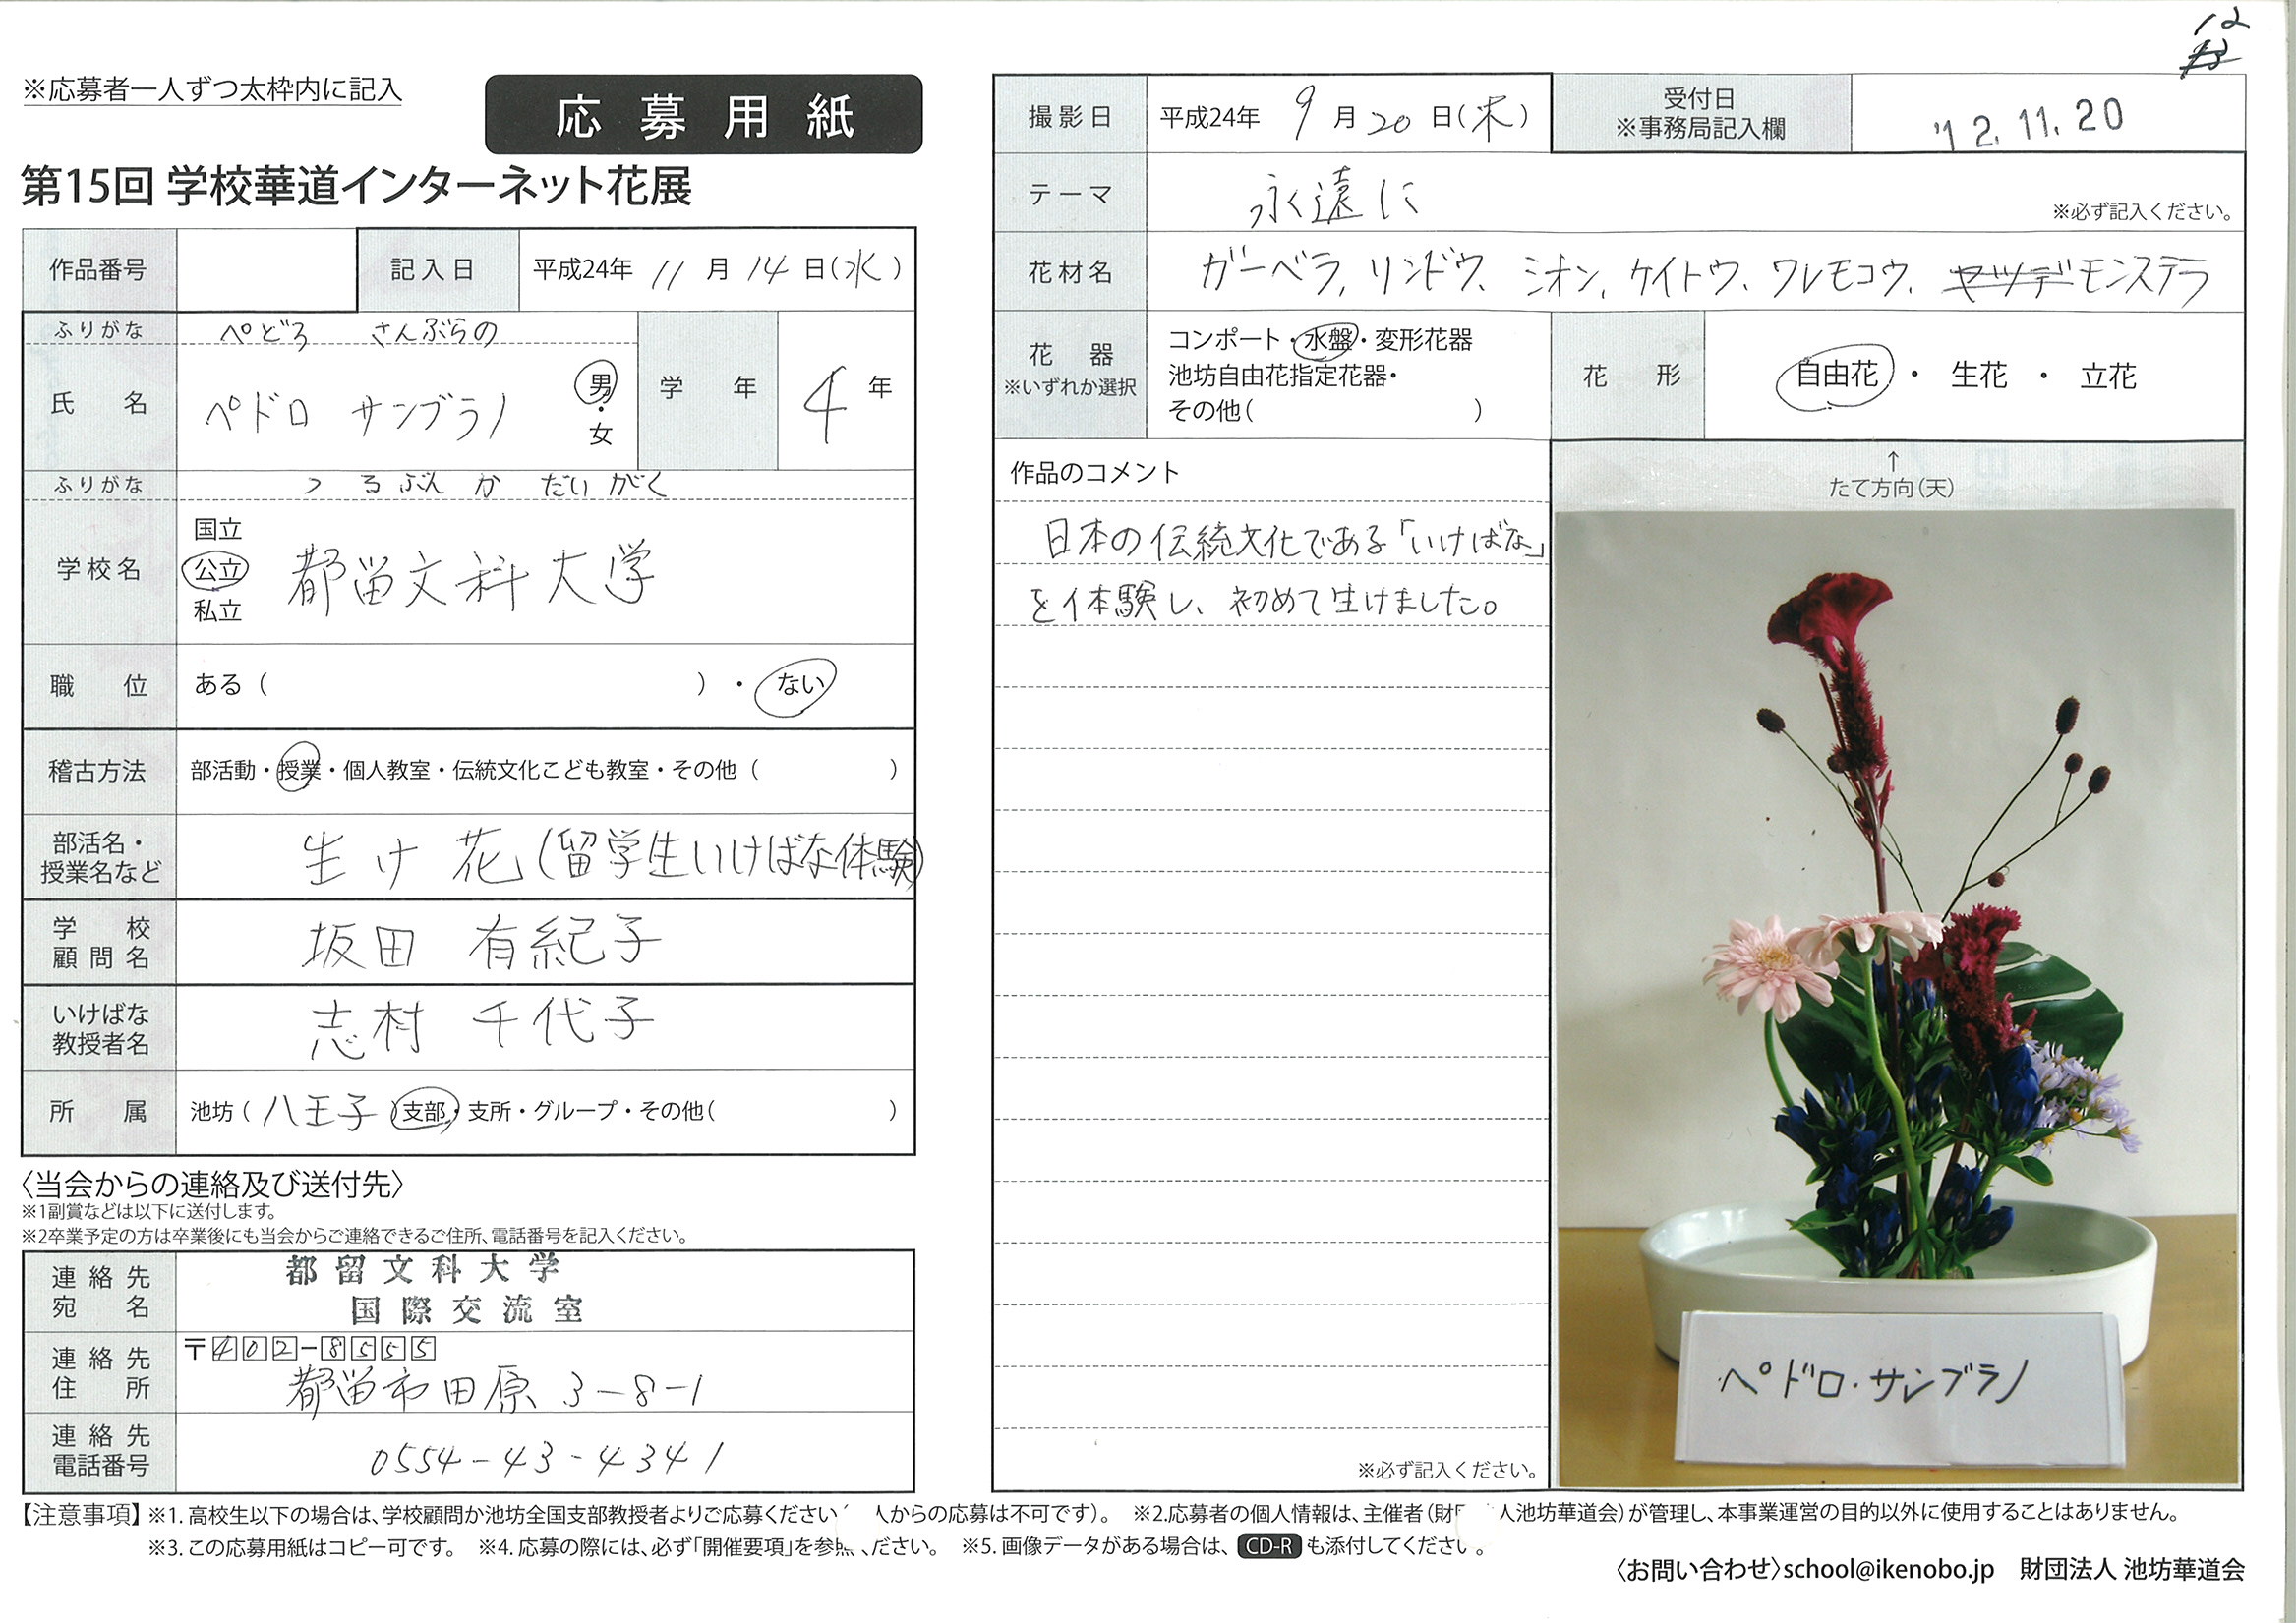 12
※応募者一人ずつ太枠内に記入
応募用紙
第15回 学校華道インターネット花展
作品番号
記入日 平成24年 11月 14日(水)
ふりがな ぺどろ さんぶらの
氏名 ペドロ サンブラノ 男・女
学年 4年
ふりがな つるぶんかだいがく
学校名 国立 公立 私立 都留文科大学
職位 ある( )・ない
稽古方法 部活動・授業・個人教室・伝統文化こども教室・その他( )
部活名・授業名など 生け花(留学生いけばな体験)
学校顧問名 坂田 有紀子
いけばな教授者名 志村 千代子
所属 池坊(八王子)支部・支所・グループ・その他( )
〈当会からの連絡及び送付先〉
※1副賞などは以下に送付します。
※2卒業予定の方は卒業後にも当会からご連絡できるご住所、電話番号を記入ください。
連絡先宛名 都留文科大学
国際交流室
連絡先住所 〒402-8555
都留市田原3-8-1
連絡先電話番号 0554-43-4341
撮影日 平成24年 9月20日(木)
受付日
※事務局記入欄
'12.11.20
テーマ 永遠に
※必ず記入ください。
花材名 ガーベラ, リンドウ、ミオン, ケイトウ、ワレモコウ, ヤツデモンステラ
花器 ※いずれか選択
コンポート・水盤・変形花器
池坊自由花指定花器・
その他( )
花形 自由花・生花・立花
作品のコメント
日本の伝統文化である「いけばな」
を体験し、初めて生けました。
※必ず記入ください。
↑
たて方向(天)
ペドロ・サンブラノ
【注意事項】※1. 高校生以下の場合は、学校顧問か池坊全国支部教授者よりご応募ください 人からの応募は不可です)。 ※2.応募者の個人情報は、主催者(財 人池坊華道会)が管理し、本事業運営の目的以外に使用することはありません。
※3. この応募用紙はコピー可です。 ※4. 応募の際には、必ず「開催要項」を参照 ださい。 ※5. 画像データがある場合は、CD-Rも添付してください。
〈お問い合わせ〉school@ikenobo.jp 財団法人 池坊華道会